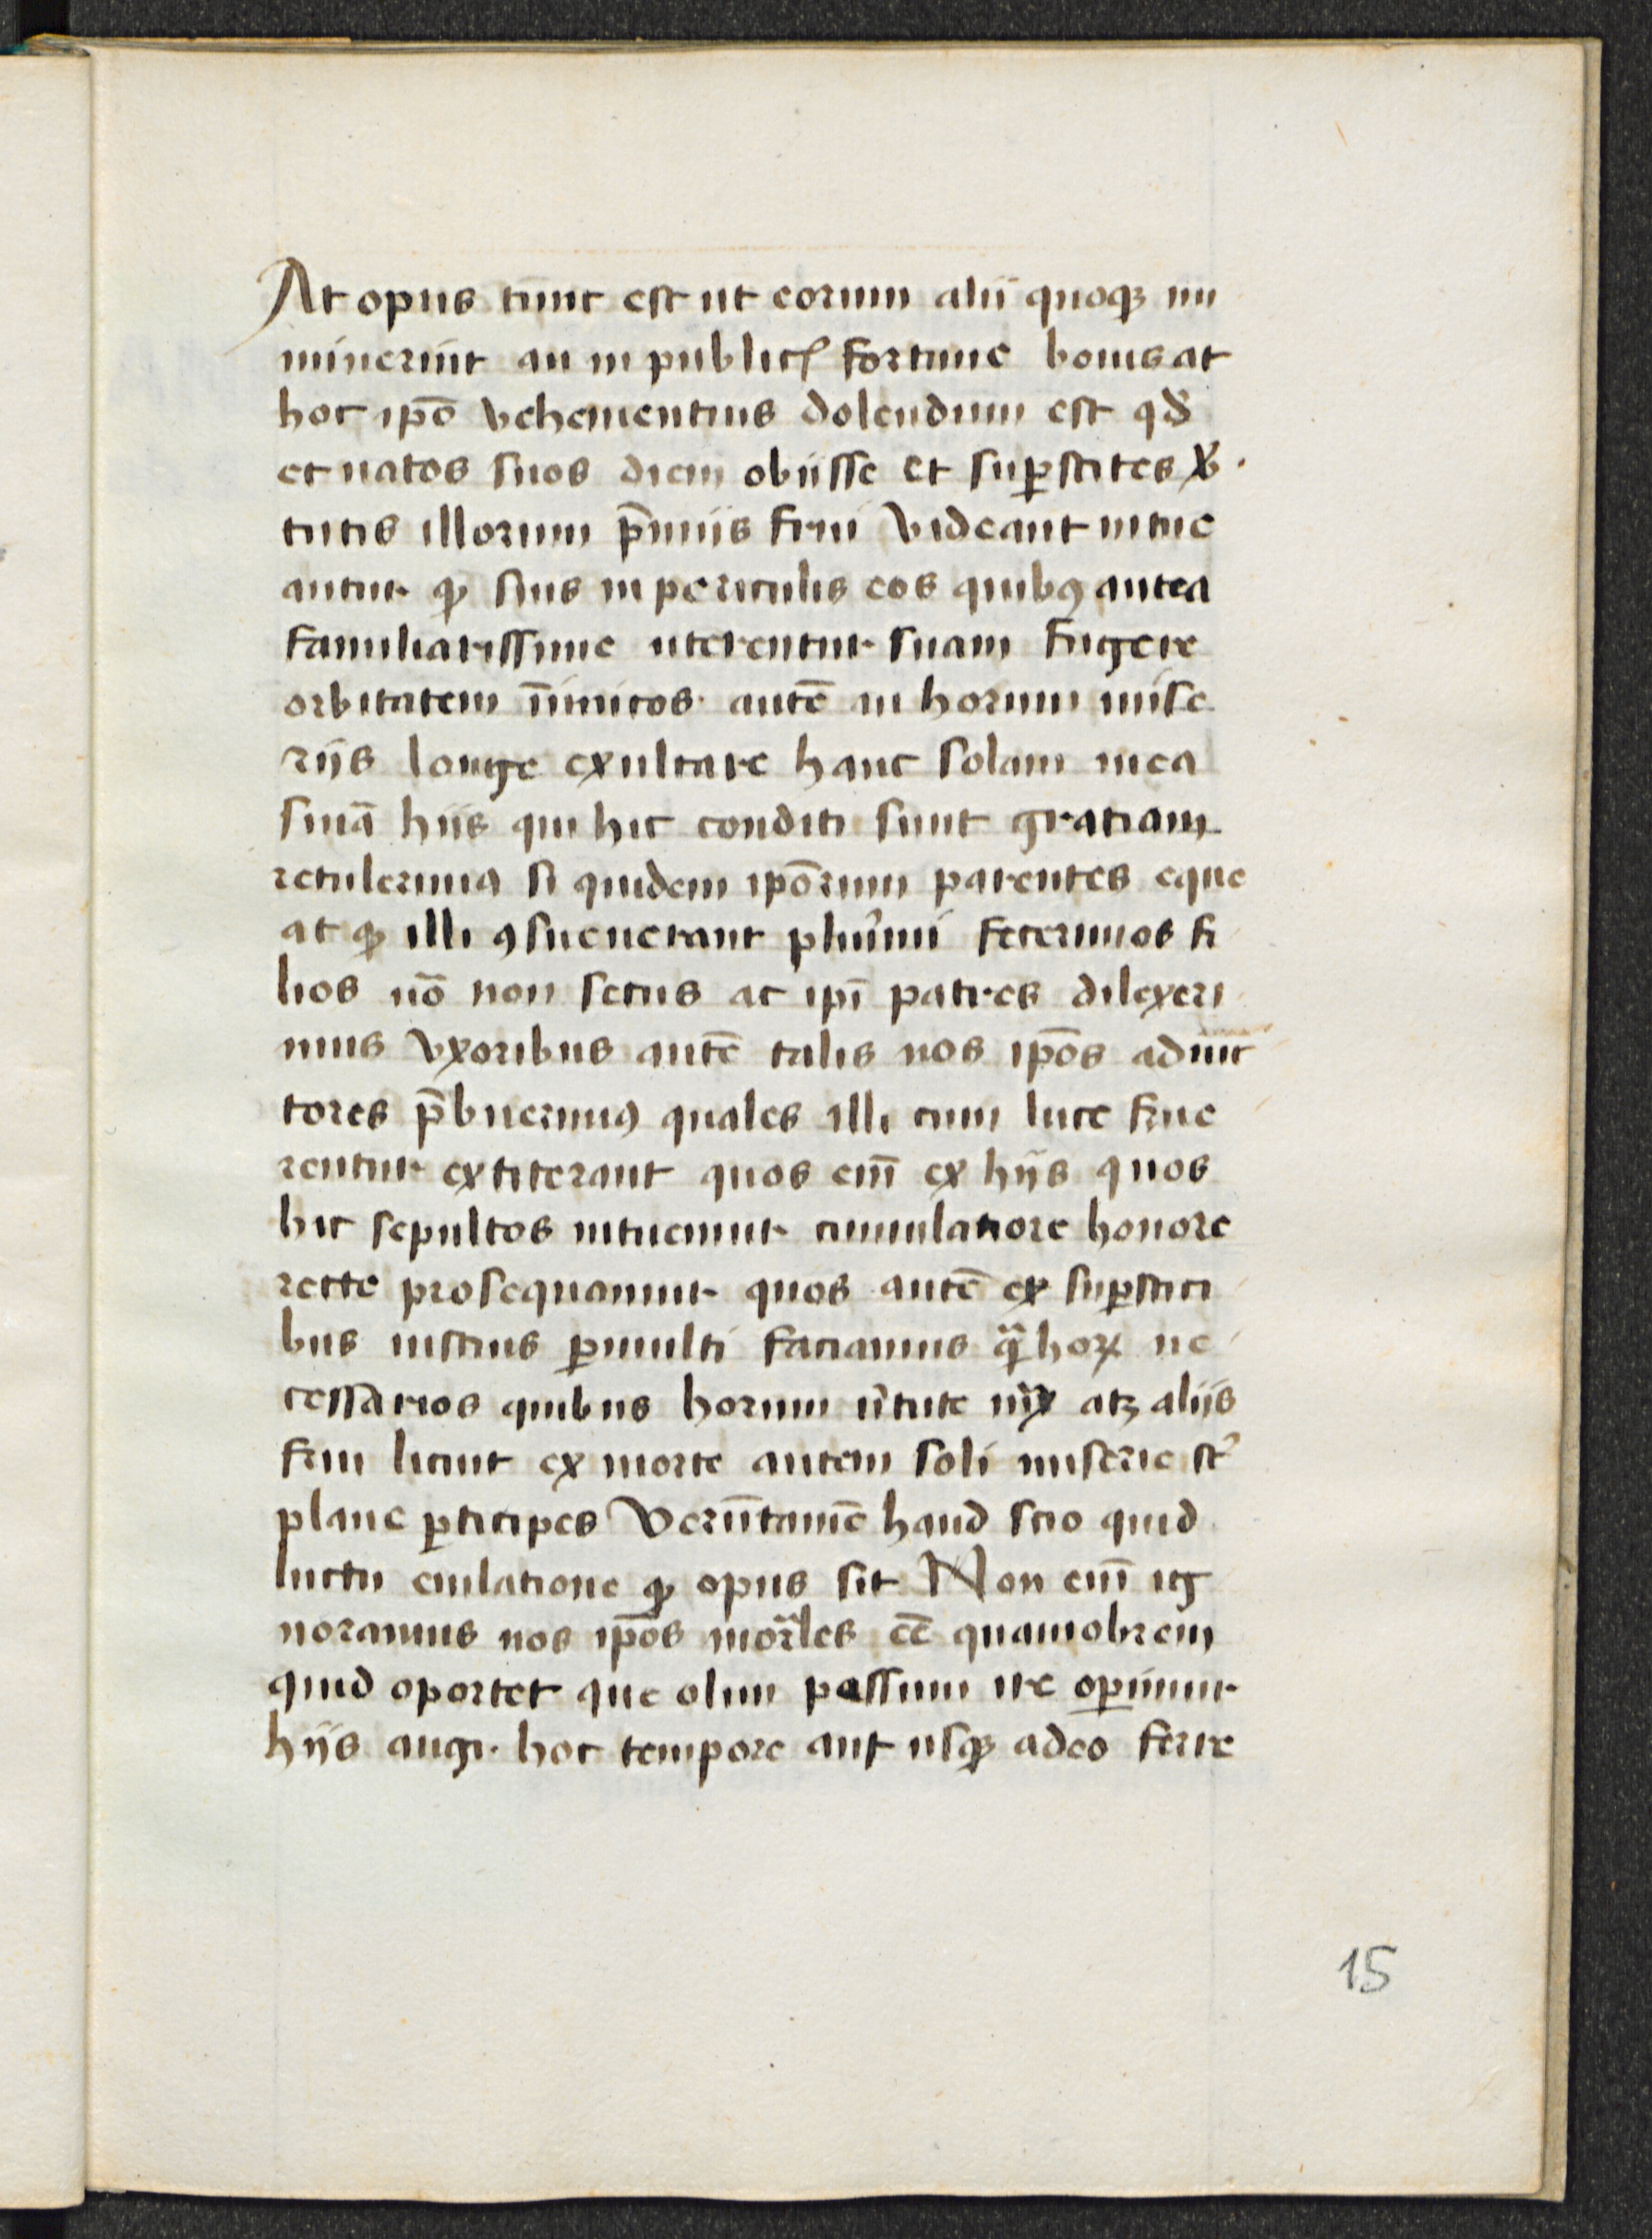 At opus tunc est ut eorum alii quoqꝫ mi
minerint an in publicꝭ fortune bonis at
hoc ip̄o vehementius dolendum est qđ
et natos suos diem obiisse et suꝑstites v̓
tutis illorum p̄miis frui videant intue
antur qꝫ suis in periculis eos quibꝯ antea
familiarissime uterentur suam fugere
orbitatem īimicos autē in horum mise
riis longe exultare hanc solam mea
sīnā hijs qui hic conditi sunt gratiam
retulerimꝯ si quidem ip̄orum parentes eque
at qꝫ illi ꝯsueuerant plur̄imi fecerimos fi
lios u̅o non secus ac ip̄i patres dilexeri
mus vxoribus autē talis nos ip̄os adiut
tores p̄buerimꝯ quales illi cum luce frue
rentur extiterant quos em̄ ex hijs quos
hic sepultos intuemur cumulatiore honore
recte prosequamur quos autē ex suꝑstiti
bus iustius ꝑmulti faciamus qͣ̄ horꝝ ne
cessarios quibus horum v̓tute nr̄ꝝ atqꝫ aliis
frui licuit ex morte autem soli miserie st̓
plane ꝑticipes Verūtamē haud scio quid
luctu eiulatione qꝫ opus sit Non em̄ ig
noramus nos ip̄os mor̄les eē̄ quamobrem
quid oportet que olim passum ire oꝑimur
hijs angi hoc tempore aut usqꝫ adeo ferre
15